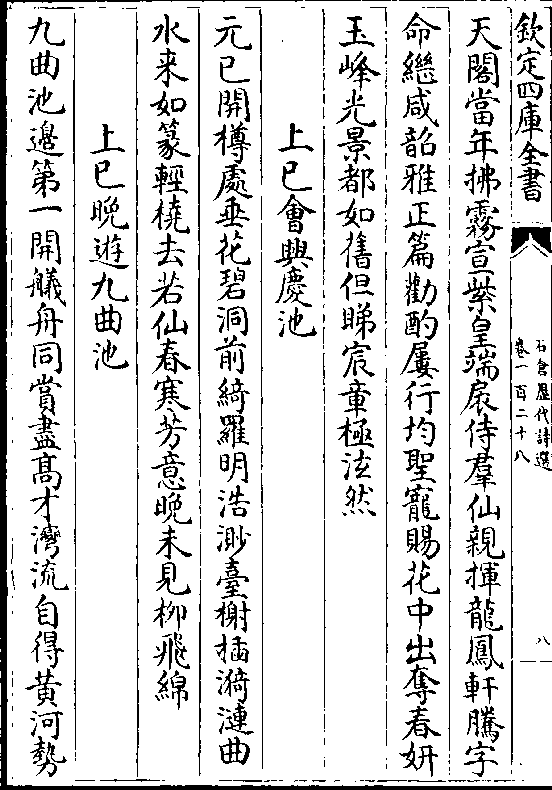 欽定四庫全書
石倉歷代詩選
卷一百二十八
八
天閣當年拂霧宣紫皇端扆侍羣仙親揮龍鳳軒騰字
命繼咸韶雅正篇勸酌屢行均聖寵賜花中出奪春妍
玉峰光景都如舊但睇宸章極泫然
上巳會興慶池
元巳開樽處垂花碧洞前綺羅明浩渺臺榭插漪漣曲
水来如篆輕橈去若仙春寒芳意晚未見栁飛綿
上巳晩遊九曲池
九曲池邉第一開艤舟同賞盡髙才灣流自得黄河勢